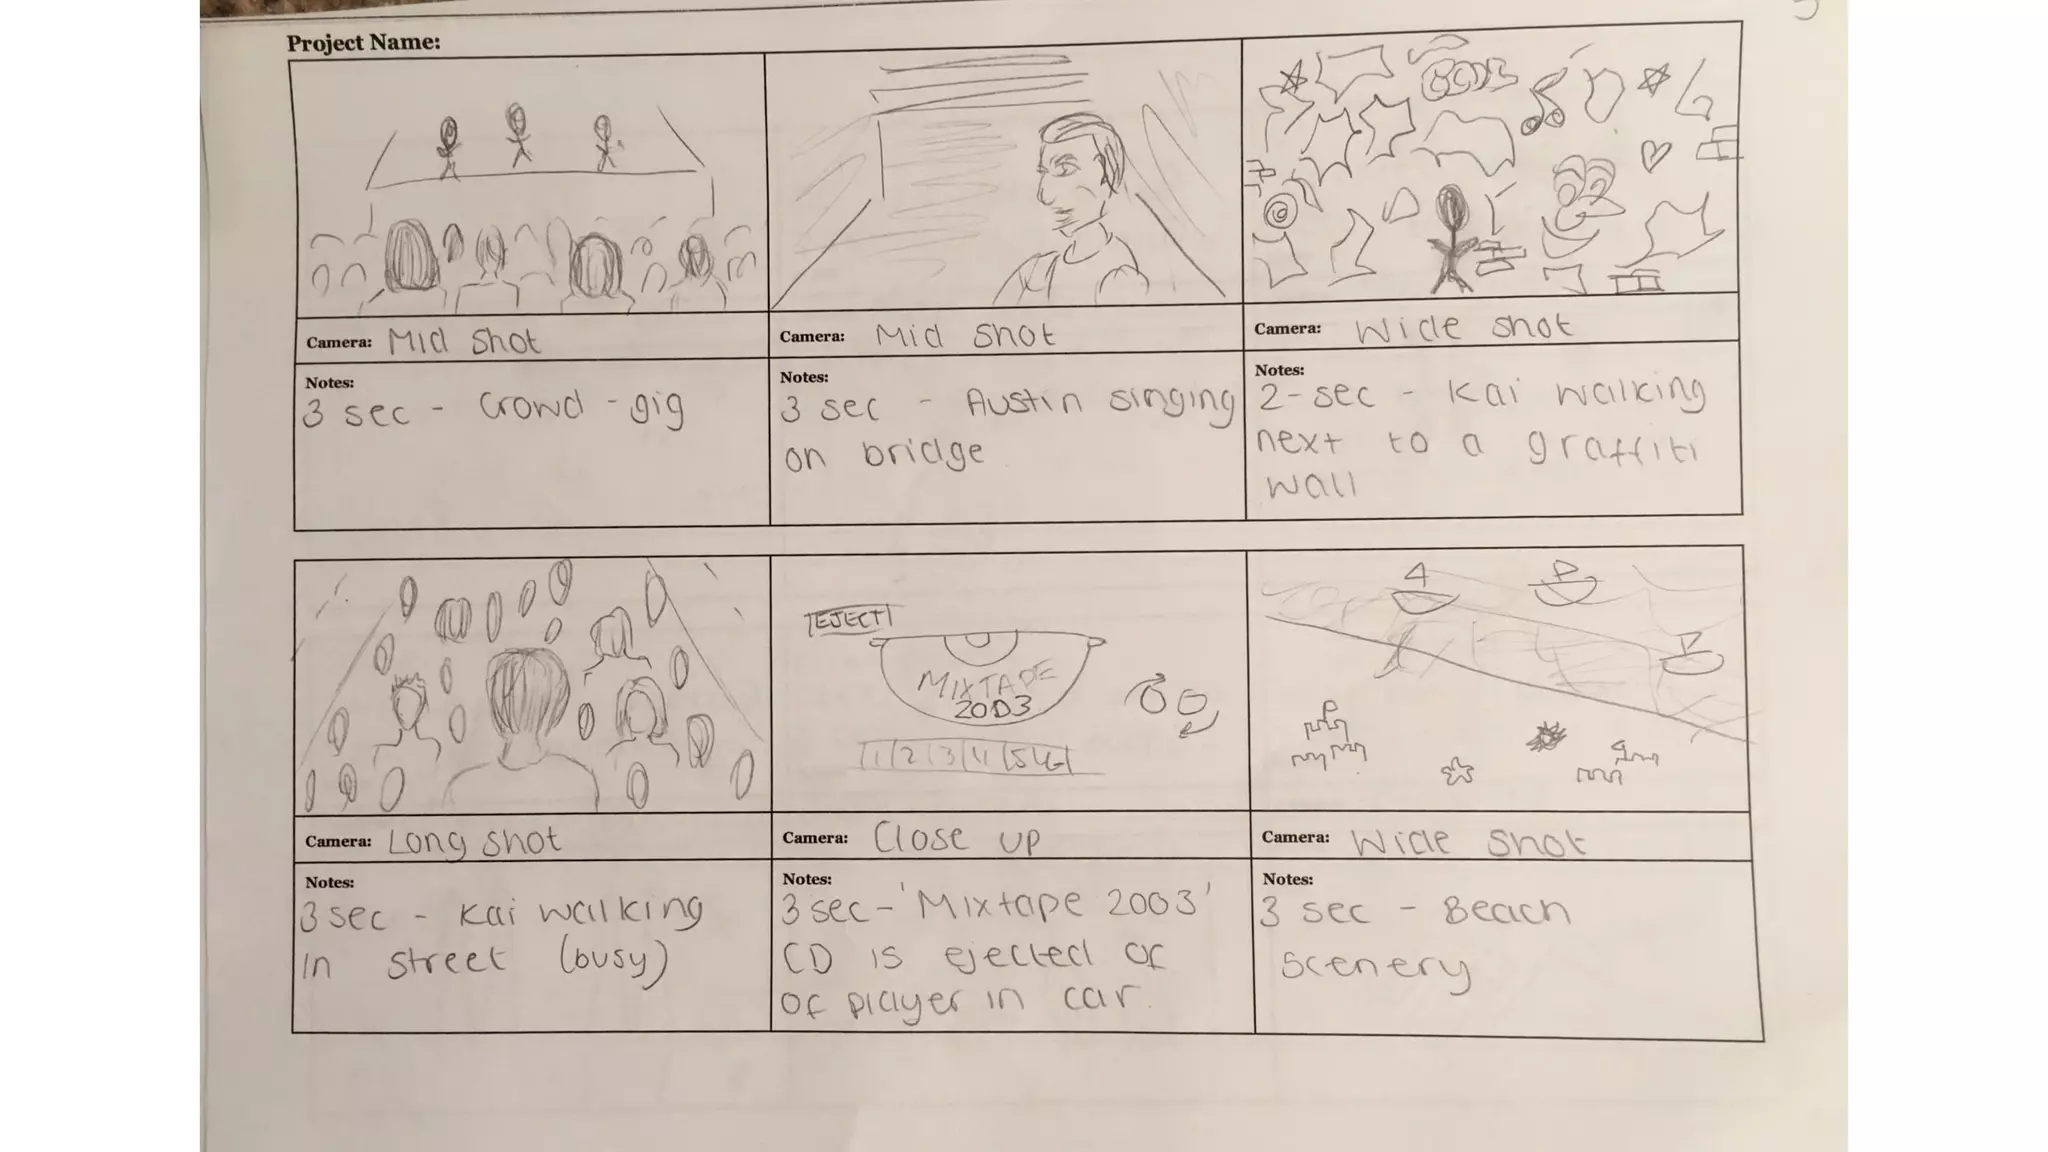 Project Name:
BCDB
Camera: Mid shot
Camera: Mid shot
Camera: Wide shot
Notes:
3 sec - Crowd - gig
Notes:
3 sec - Austin singing
on bridge
Notes:
2-sec - Kai walking
next to a graffiti
wall
EJECT
MIXTAPE
2003
1 2 3 4 5 6
Camera: Long shot
Camera: Close up
Camera: Wide shot
Notes:
3 sec - Kai walking
in street (busy)
Notes:
3 sec - 'Mixtape 2003'
CD is ejected of
of player in car.
Notes:
3 sec - Beach
scenery